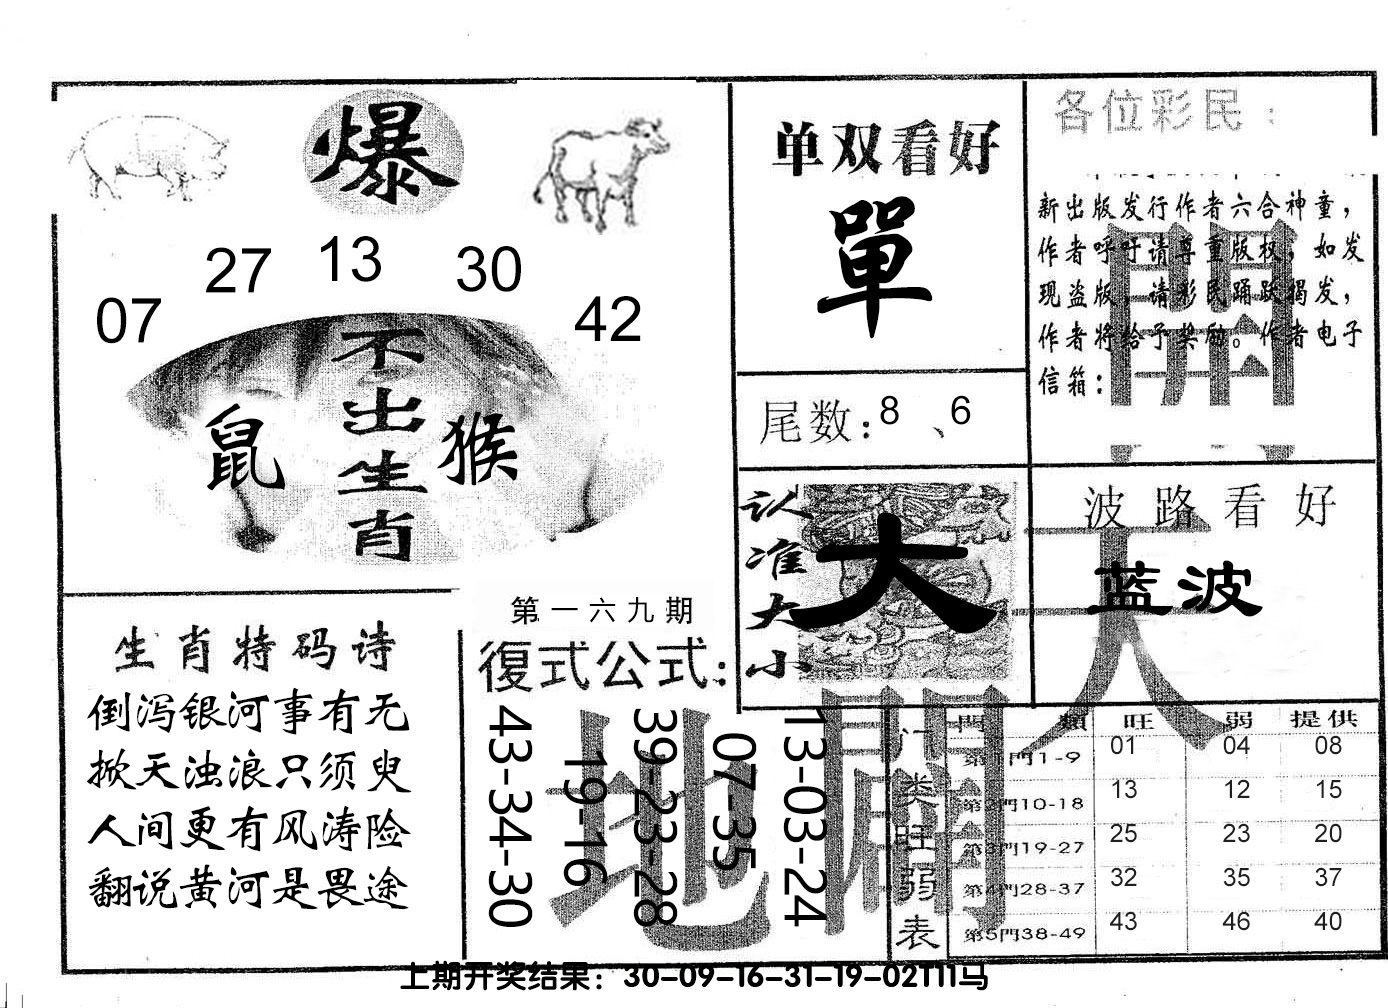 爆
27 13 30
07 42
不出生肖
鼠 猴
单双看好
單
尾数：8、6
各位彩民：
新出版发行作者六合神童，
作者呼吁请尊重版权，如发
现盗版，请彩民踊跃揭发，
作者将给予奖励。作者电子
信箱：
認准大小
大
波路看好
蓝波
天
開
地
闢
生肖特码诗
倒泻银河事有无
掀天浊浪只须臾
人间更有风涛险
翻说黄河是畏途
第一六九期
復式公式：
43-34-30
19-16
39-23-28
07-35
13-03-24
门类旺弱表
門類 旺 弱 提供
第1門1-9 01 04 08
第2門10-18 13 12 15
第3門19-27 25 23 20
第4門28-37 32 35 37
第5門38-49 43 46 40
上期开奖结果：30-09-16-31-19-02T11马